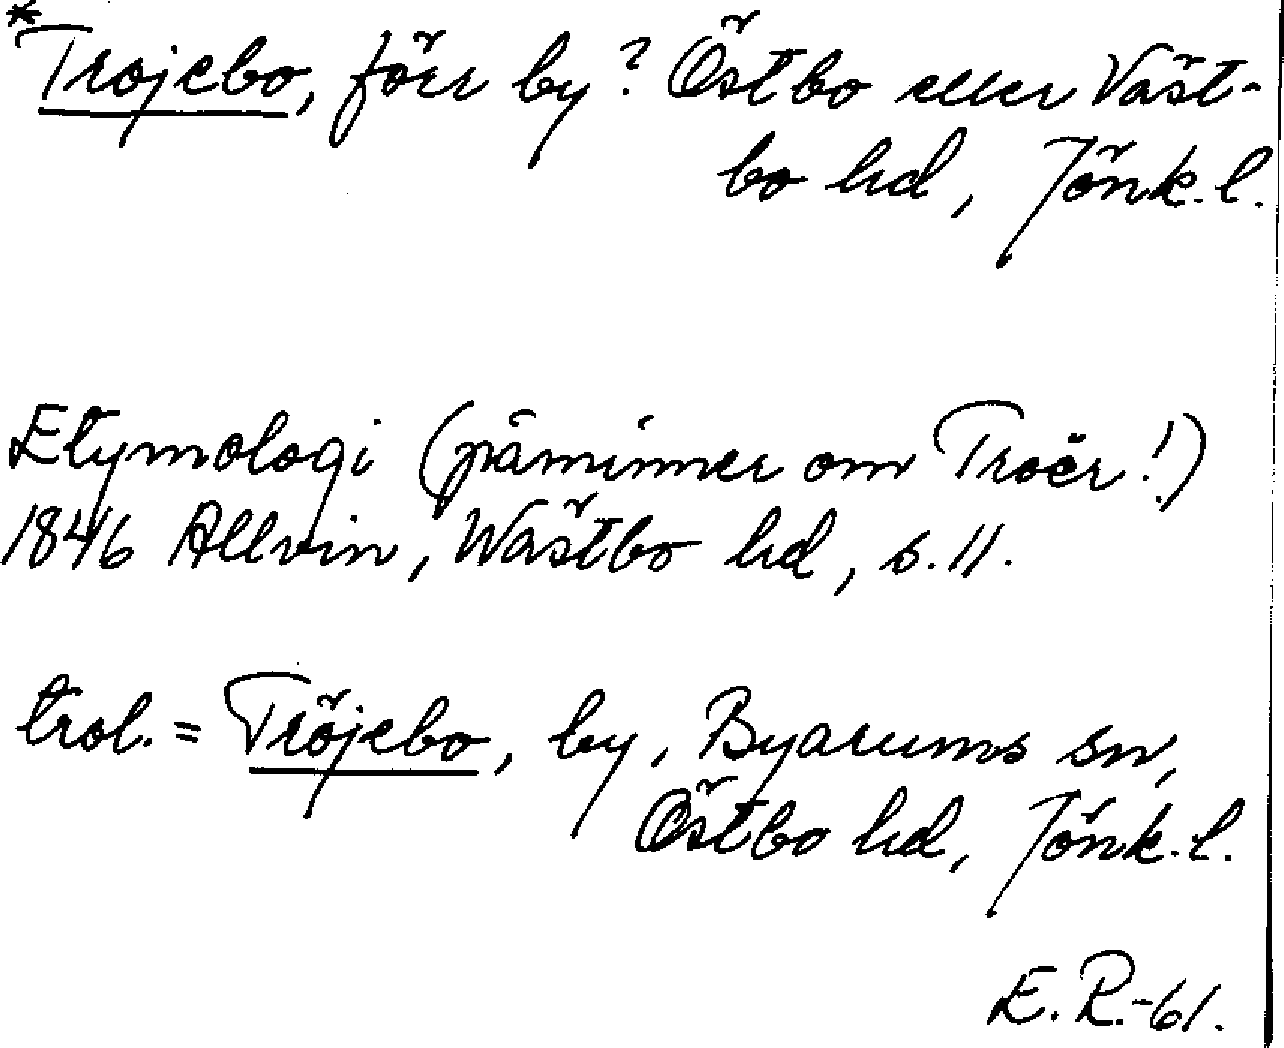 *Trojebo, förr by? Östbo eller Väst-
bo hd, Jönk.l.
Etymologi (påminner om Troër!)
1846 Allvin, Wästbo hd, s.11.
trol. = Tröjebo, by, Byarums sn,
Östbo hd, Jönk.l.
E.R.-61.